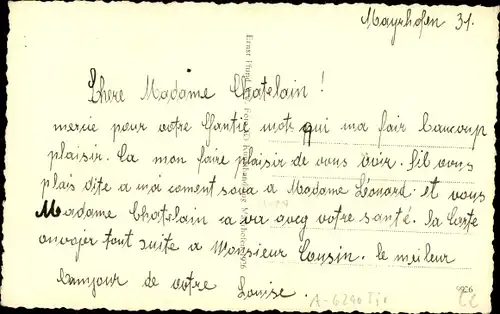 Mayrhofen 31.
Chere Madame Chatelain !
mercie pour votre Gantie mot qui ma fair baucoup
plaisir. Ca mon faire plaisir de vous voir. Sil vous
plais dite a moi coment sava a Madame Léonard. et vous
Madame Chatelain ca va aveq votre santé. la Carte
envojer tout suite a Monsieur Cousin. le meileur
bamjour de votre Louise.
A-6290 Tir
9926